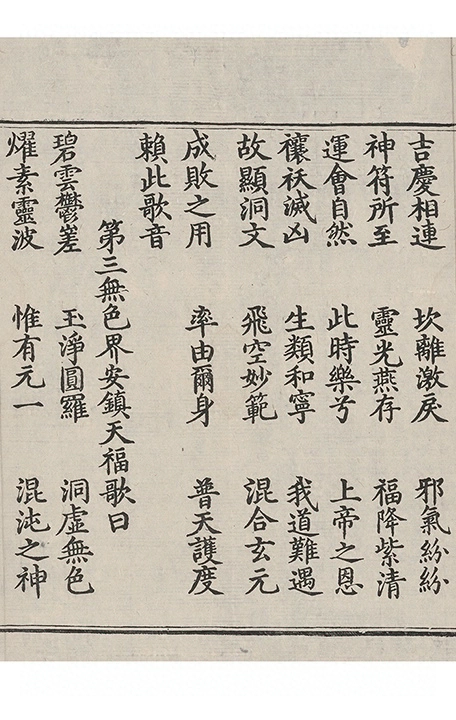 吉慶相連　坎離激戾　邪氣紛紛
神符所至　靈光燕存　福降紫清
運會自然　此時樂兮　上帝之恩
禳祅滅凶　生類和寧　我道難遇
故顯洞文　飛空妙範　混合玄元
成敗之用　率由爾身　普天護度
賴此歌音
第三無色界安鎮天福歌曰
碧雲鬱嵳　玉淨圓羅　洞虛無色
燿素靈波　惟有元一　混沌之神